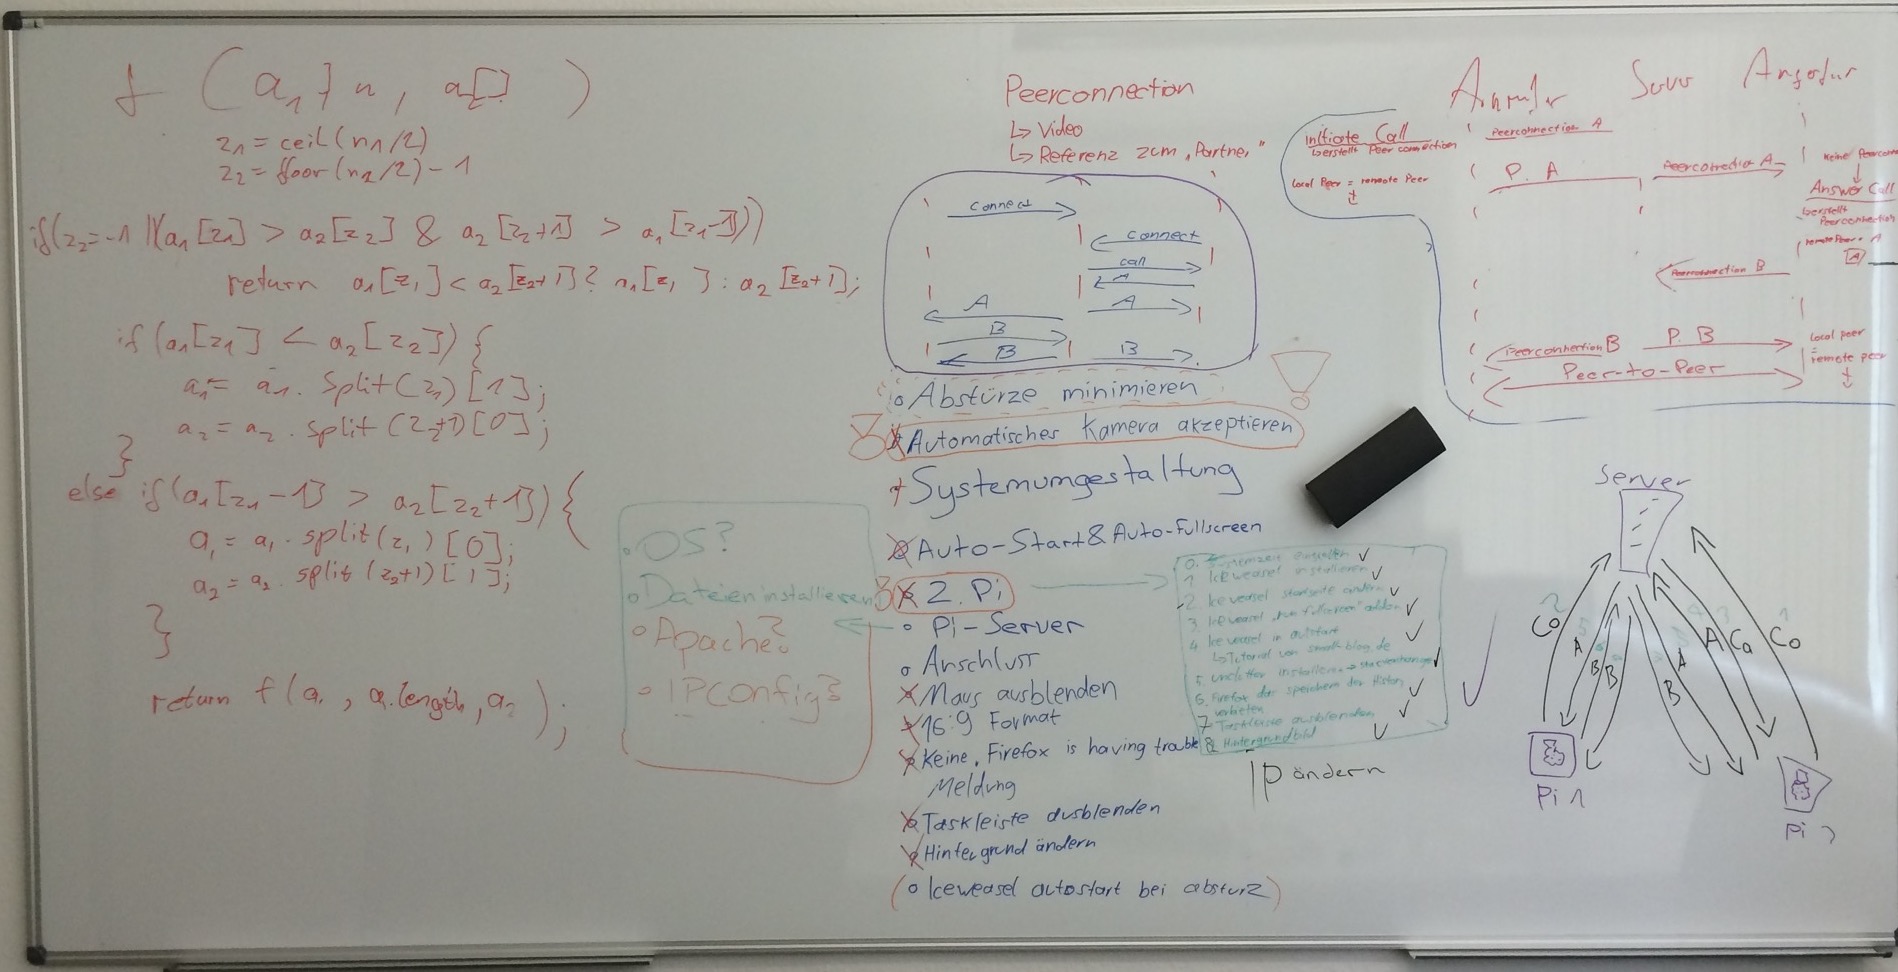 f (a₁, n, a₂[] )
z₁ = ceil(n₁/2)
z₂ = floor(n₂/2) - 1
if(z₂ = -1 ||(a₁[z₁] > a₂[z₂] & a₂[z₂+1] > a₁[z₁-1]))
return a₁[z₁] < a₂[z₂+1] ? a₁[z₁] : a₂[z₂+1];
if(a₁[z₁] < a₂[z₂]) {
a₁ = a₁.split(z₁)[1];
a₂ = a₂.split(z₂+1)[0];
}
else if(a₁[z₁-1] > a₂[z₂+1]) {
a₁ = a₁.split(z₁)[0];
a₂ = a₂.split(z₂+1)[1];
}
return f(a₁, a₁.length, a₂);
OS?
Dateien installieren
Apache?
IPConfig?
Peerconnection
↳ Video
↳ Referenz zum „Partner"
connect
connect
call
A
A
A
B
B
B
Abstürze minimieren
Automatisches Kamera akzeptieren
Systemumgestaltung
Auto-Start & Auto-Fullscreen
2. Pi
Pi-Server
Anschluss
Maus ausblenden
16:9 Format
Keine „Firefox is having trouble
Meldung
Taskleiste ausblenden
Hintergrund ändern
(Iceweasel autostart bei absturz)
0. einstellen ✓
1. Iceweasel installieren ✓
2. Iceweasel startseite ändern ✓
3. Iceweasel „run fullscreen" addon ✓
4. Iceweasel in autostart
↳ Tutorial von blog.de ✓
5. unclutter installieren ✓
6. Firefox das speichern der History
verbieten ✓
7. Taskleiste ausblenden ✓
8. Hintergrundbild ✓
IP ändern
Anrufer Server Angerufener
Initiate Call
↳ erstellt Peerconnection
Local Peer = remote Peer
Peerconnection A
P. A
Peerconnection A
Keine Peerconn
Answer Call
↳ erstellt
Peerconnection
remote Peer = A
A
Peerconnection B
Peerconnection B
P. B
Local peer
=
remote peer
Peer-to-Peer
Server
Co
A
B
B
B
A
A
Ca
Co
Pi 1
Pi 2